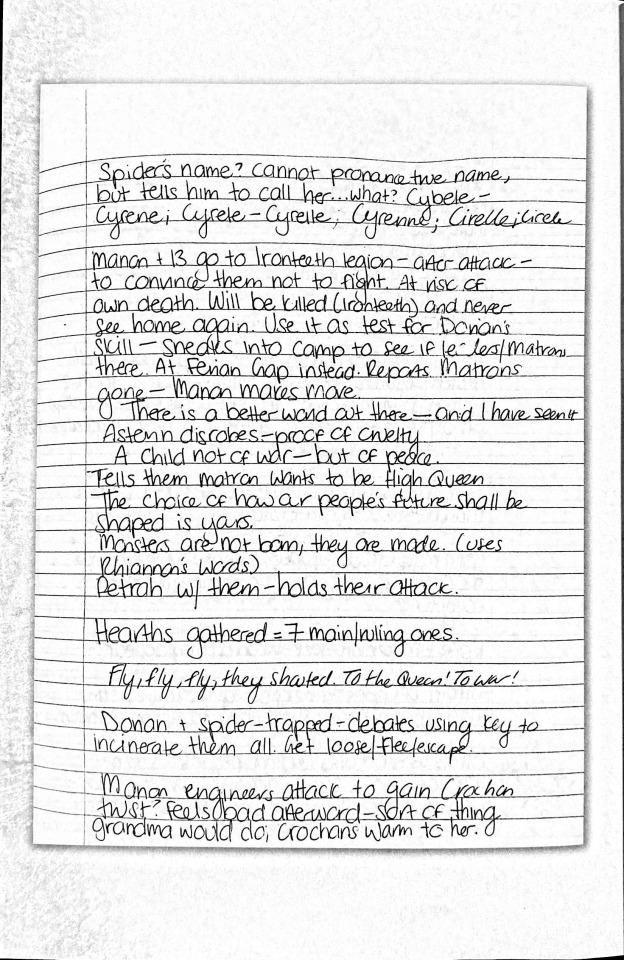 Spider's name? Cannot pronounce true name,
but tells him to call her...what? Cybele-
Cyrene; Cyrele-Cyrelle; Cyrenne; Cirelle;
Manon + 13 go to Ironteeth legion- after attack-
to convince them not to fight. At risk of
own death. Will be killed (Ironteeth) and never
see home again. Use it as test for Dorian's
skill- sneaks into camp to see if /Matrons
there. At Ferian Gap instead. Reports Matrons
gone- Manon makes move.
There is a better world out there- and I have seen it
Asterin disrobes-proof of cruelty
A child not of war-but of peace.
Tells them matron wants to be High Queen
The choice of how our people's future shall be
shaped is yours.
Monsters are not born, they are made. (uses
Rhiannon's words)
Petrah w/ them-holds their attack.
Hearths gathered = 7 main/ruling ones.
Fly, fly, fly, they shouted. To the Queen! To war!
Dorian + spider-trapped-debates using key to
incinerate them all. Get loose/flee/escape.
Manon engineers attack to gain Crochan
trust? Feels bad afterward-sort of thing
grandma would do; Crochans warm to her.